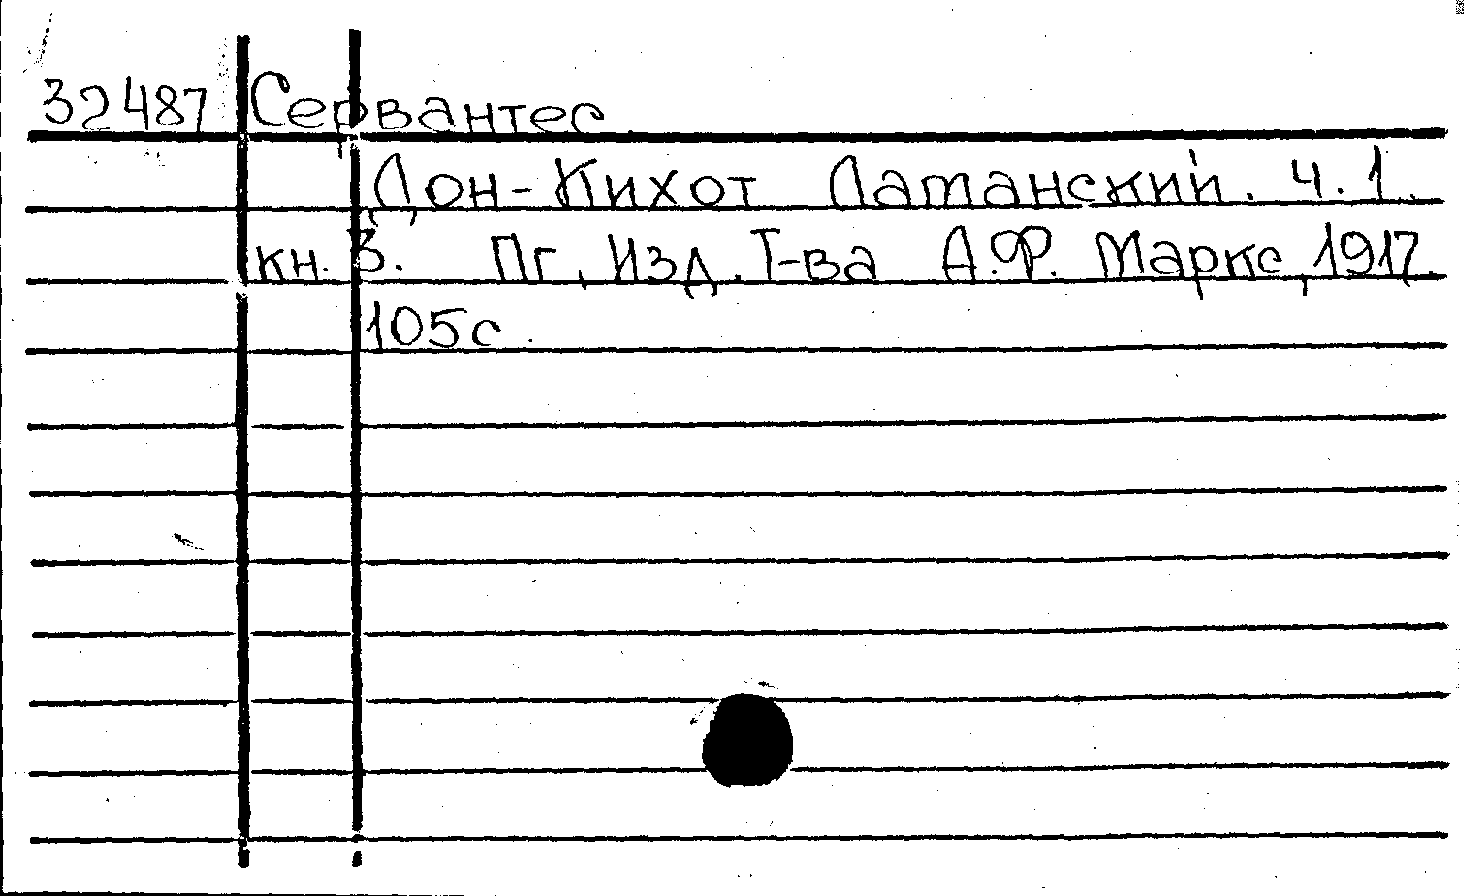 32487 Сервантес
Дон-Кихот Ламанский. ч.1.
кн. 3. Пг, Изд. Т-ва А.Ф. Маркс, 1917.
105с.